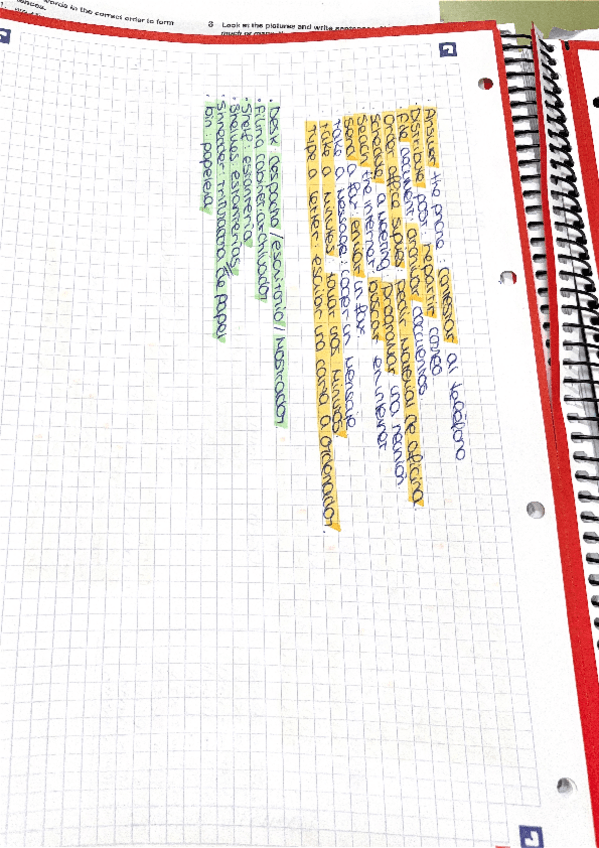 words in the correct order to form
ences.
3 Look at the pictures and write sentences
much or many
Answer the phone: contestar al teléfono
Distribute post: repartir correo
File document: archivar documentos
Order office suplies: pedir material de oficina.
Schedule a meeting: programar una reunión
Seach the internet: buscar en internet
Send a fax: enviar un fax.
Take a message: coger un mensaje
Take a minutes: tomar unos minutos.
Type a letter: escribir una carta a ordenador.
· Desk: despacho/escritorio/ mostrador
· Filing cabinet: archivador
· Shelf: estantería
· Shelves: estanterías
· Shredder: trituradora de papel
· bin: papelera